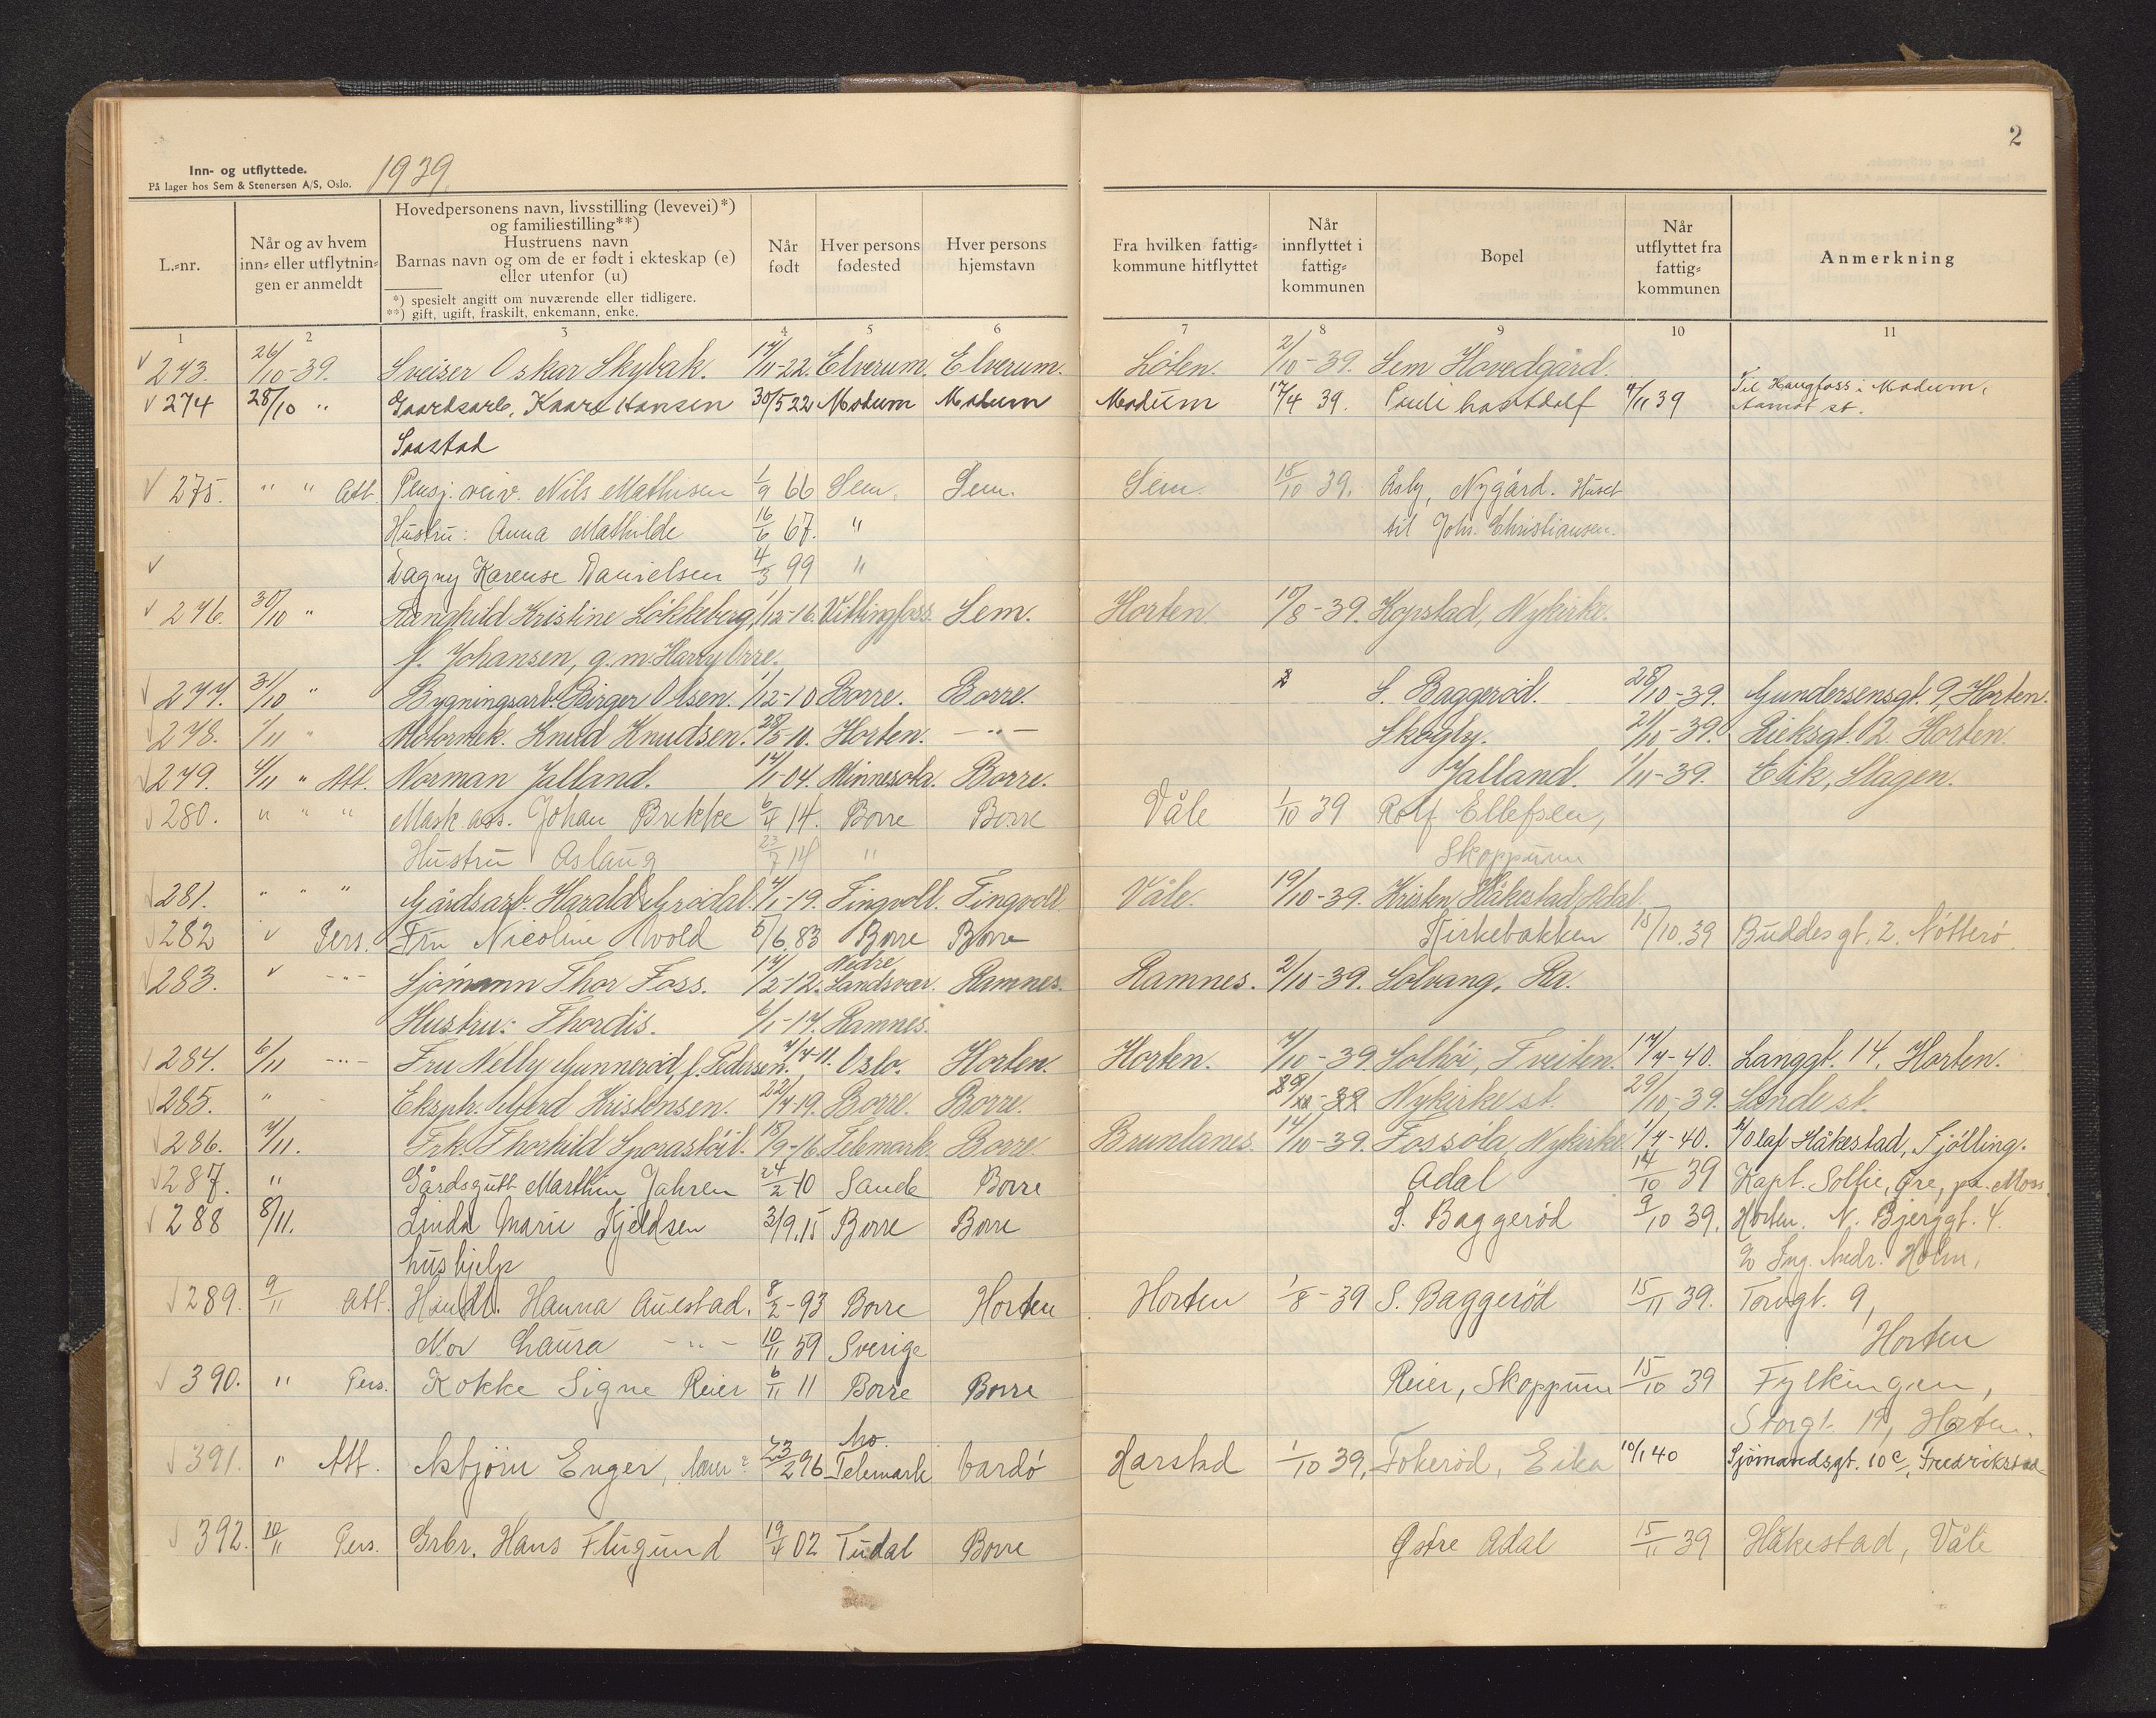 2
Inn- og utflyttede. 1939.
På lager hos Sem & Stenersen A/S, Oslo.
L.-nr. | Når og av hvem inn- eller utflytningen er anmeldt | Hovedpersonens navn, livsstilling (levevei)*) og familiestilling**) Hustruens navn Barnas navn og om de er født i ekteskap (e) eller utenfor (u) *) spesielt angitt om nuværende eller tidligere. **) gift, ugift, fraskilt, enkemann, enke. | Når født | Hver persons fødested | Hver persons hjemstavn | Fra hvilken fattigkommune hitflyttet | Når innflyttet i fattigkommunen | Bopel | Når utflyttet fra fattigkommunen | Anmerkning
1 2 3 4 5 6 7 8 9 10 11
273. 26/10-39. Sveiser Oskar Skybak. 14/11-22. Elverum. Elverum. Löten. 2/10-39. Sem Hovedgård.
274 28/10 " Gaardsarb. Kaare Hansen 30/5 22 Modum Modum Modum 17/4 39. 4/11 39 Til Haugfoss i Modum, Aamot st.
Saastad
275. " " Att. Pensj. Nils Mathisen 1/9 66 Sem. Sem. Sem. 15/10 39. Åsly, Nygård. Huset
Hustru: Anna Mathilde 16/6 67. " til Johs. Christiansen.
Dagny Karense Danielsen 4/3 99 "
276. 30/10 " Ragnhild Kristine Lökkeberg, 1/12-16. Vittingfoss. Sem. Horten. 10/8-39. Kopstad, Nykirke.
f. Johansen, g.m. Harry Orre.
277. 31/10 " Bygningsarb. Birger Olsen. 1/12-10 Borre. Borre. S. Baggeröd. 28/10-39. Gundersensgt. 9, Horten.
278. 1/11 " Motormek. Knud Knudsen. 28/5-11. Horten. -"- Skogly. 21/10-39. 2. Horten.
279. 4/11 " Att. Norman Jalland. 14/1-04. Minnesota. Borre. Jalland. 1/11-39. Eik, Slagen.
280. " " " Mask ass. Johan Brekke 6/4 14. Borre Borre Våle 1/10 39 Rolf Ellefsen,
Hustru Aslaug 23/7 14 " Skoppum
281. " " " Gårdsarb. Harald Grödal. 4/1-19. Tingvoll. Tingvoll Våle. 19/10-39. Kristen Håkestad, Adal
282 " Pers. Fru Nicoline Wold 5/6.83 Borre Borre Kirkebakken 15/10.39 Buddesgt. 2. Nötterö.
283. " -"- Sjömann Thor Foss. 14/2-12. Nedre Sandsvær. Ramnes. Ramnes. 2/10-39. Solvang, Ra.
Hustru: Thordis. 6/1-17. Ramnes.
284. 6/11 -"- Fru Nelly Gunneröd, f. Pedersen. 4/4-11. Oslo. Horten. Horten. 7/10-39. Solhöi, Tveiten. 14/4-40. Langgt. 14. Horten.
285. " Eksptr. Alferd Kristensen. 22/4-19. Borre. Borre. Nykirke st. 29/10-39. Sande st.
286. 7/11. Frk. Thorhild 18/9-16. Telemark. Borre. Brunlanes. 14/10-39. Nykirke 1/4-40. Olaf Håkestad, Tjölling.
287. " Gårdsgutt Marthin Jahren 24/2-10 Sande Borre Adal 14/10 39 Kapt. Sollie, Öre, pr. Moss.
288 8/11. Linda Marie Kjeldsen 3/9.15 Borre Borre S. Baggeröd 9/10 39. Horten. N. Bjerggt. 4.
hushjelp Ing. Andr. Holm,
289. 9/11 Att. Handl. Hanna Auestad. 8/2-93 Borre Horten Horten 1/8-39 S. Baggeröd 15/11 39. Torvgt. 9,
Mor Laura -"- 10/11 59 Sverige Horten
390. " Pers. Kokke Signe Reier 6/11 11 Borre Borre Reier, Skoppum 15/10 39 Fylkingen,
Storgt. 19, Horten.
391. " Att. Asbjörn Enger, 23/2 96 Mo. Telemark Vardö Harstad 1/10 39, Fokeröd, Eika 10/1 40 Sjömandsgt. 10 c, Fredrikstad
392. 10/11 Pers. Grbr. Hans Flugund 19/4 02 Tudal Borre Østre Adal 15/11 39 Håkestad, Våle